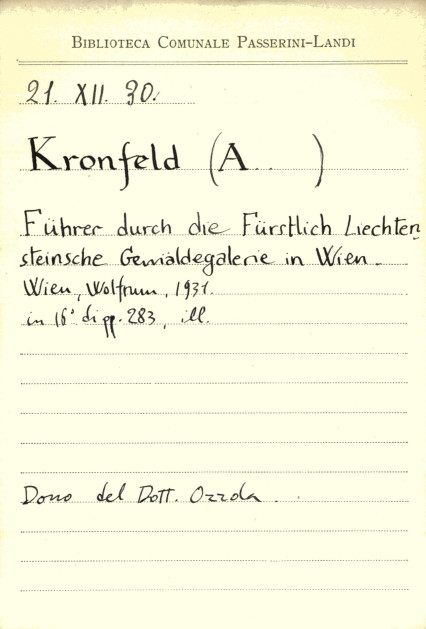 BIBLIOTECA COMUNALE PASSERINI-LANDI
21. XII. 30.
Kronfeld (A.. )
Führer durch die Fürstlich Liechten
steinsche Gemäldegalerie in Wien.
Wien, Wolfrum, 1931.
in 16° di pp. 283, ill.
Dono del Dott. Ozzola.